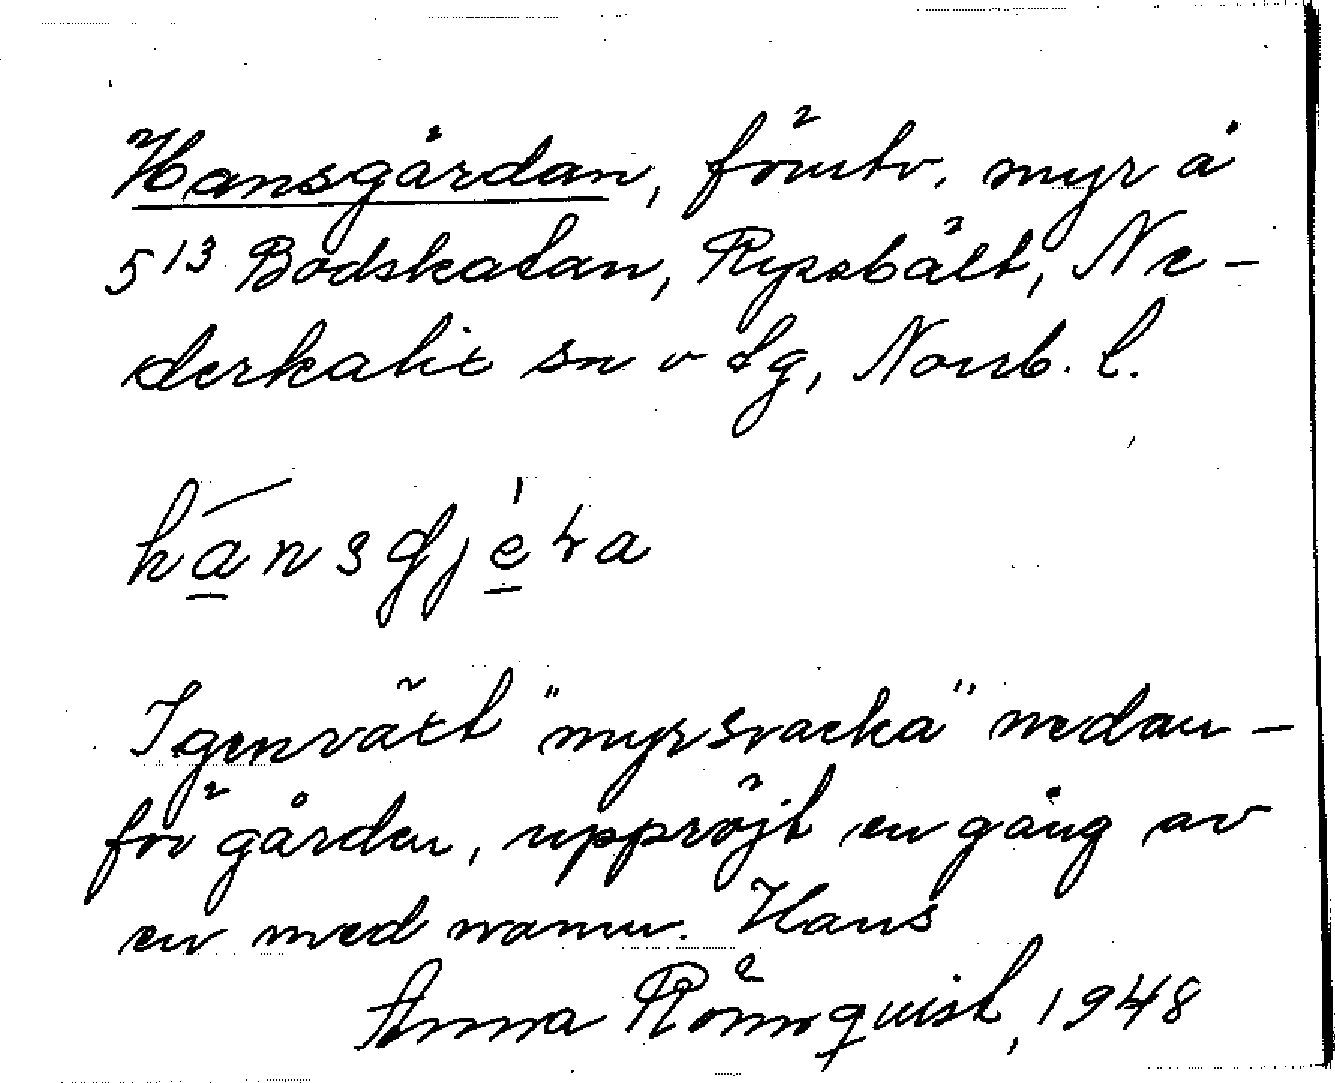 Hansgårdan, förutv. myr å
5¹³ Bodskatan, Ryssbält, Ne-
derkalix sn o tg, Norrb. l.
hánsgjéʹra
Igenväxt "myrsvacka" nedan-
för gården, uppröjt en gång av
en med namn. Hans
Anna Rönnquist, 1948